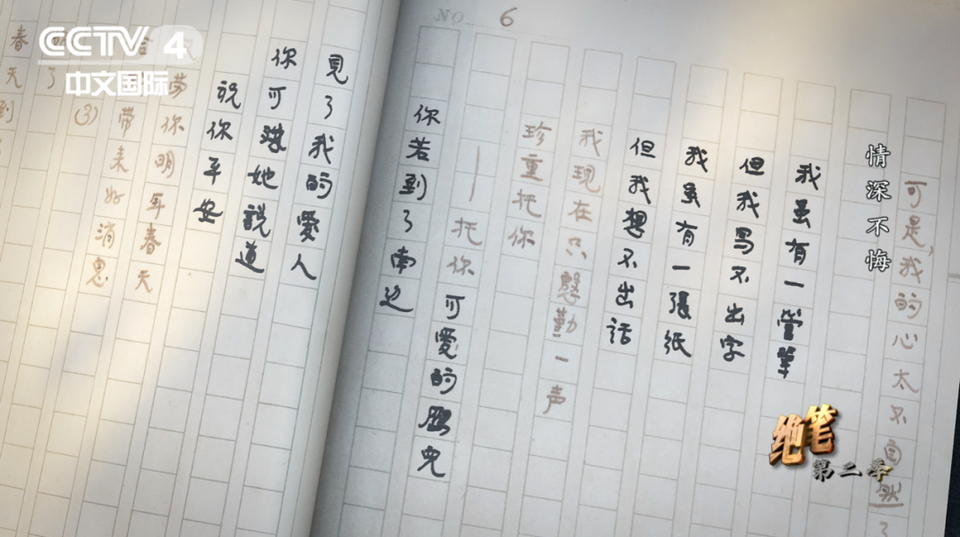 CCTV 4
中文国际
NO 6
可是,我的心太不自然了
情深不悔
我虽有一管筆
但我写不出字
我虽有一張紙
但我想不出話
我现在只慇勤一声
珍重托你
——托你可愛的雁兒
你若到了南边
見了我的愛人
你可對她說道
祝你平安
劳你明年春天
带来好消息
(3)
了
春天到
绝笔
第二季